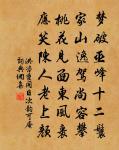 夢破巫峰十二鬟
家山逸駕尚容攀
桃花見面東風裏
應笑陳人老上顏
洪咨夔